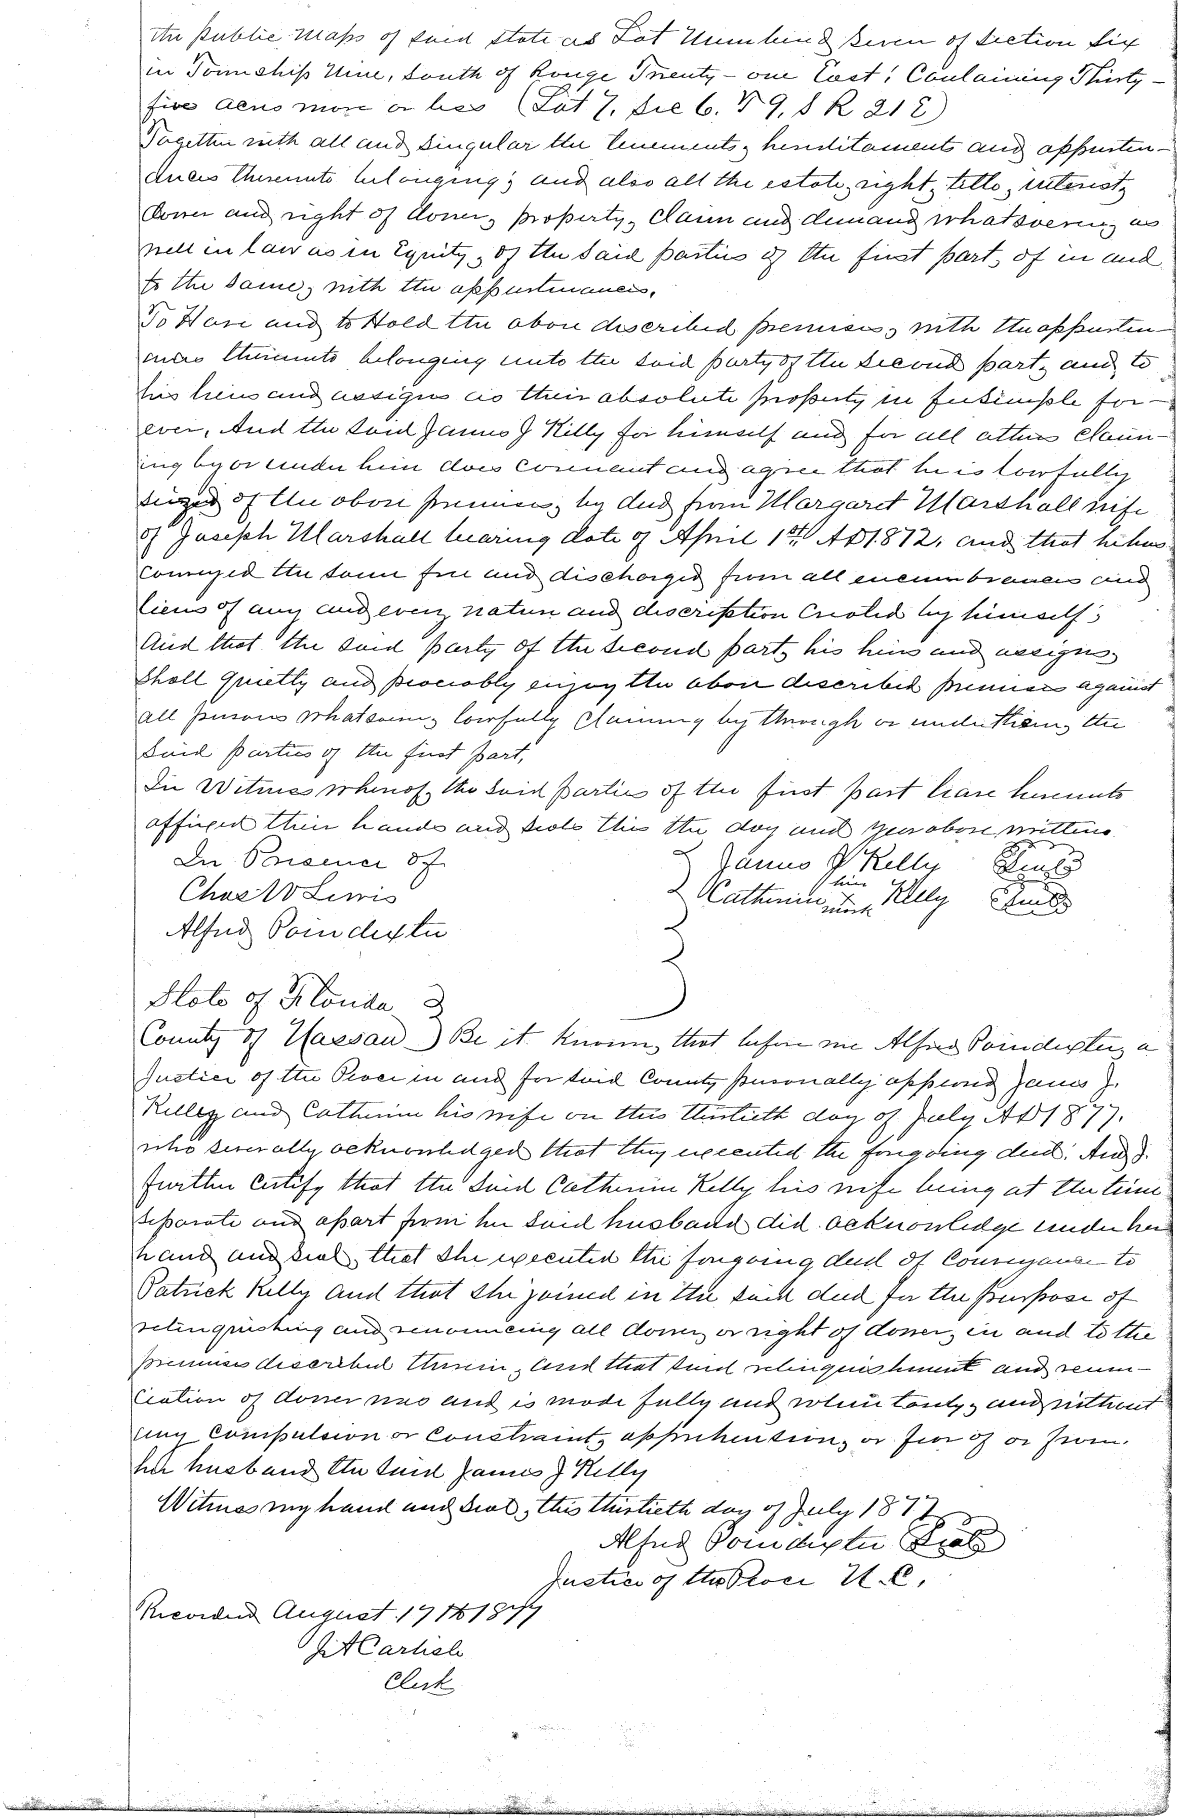 the public maps of said state as Lot Numbered Seven of Section Six
in Township Nine, South of Range Twenty-one East; Containing Thirty-
five acres more or less (Lot 7. Sec 6. T 9. S R 21 E)
Together with all and Singular the tenements, hereditaments and appurten-
ances thereunto belonging; and also all the estate, right, title, interest,
Dower and right of dower, property, Claim and demand whatsoever, as
well in law as in Equity, of the Said parties of the first part, of in and
to the Same, with the appurtenances.
To Have and to Hold the above described premises, with the appurten-
ances thereunto belonging unto the said party of the Second part, and to
his heirs and assigns as their absolute property in fee Simple for-
ever, And the Said James J Kelly for himself and for all others claim-
ing by or under him does covenant and agree that he is lawfully
Siezed of the above premises, by deed from Margaret Marshall wife
of Joseph Marshall bearing date of April 1st AD 1872, and that he has
Conveyed the Same free and discharged from all encumbrances and
liens of any and every nature and discription Created by himself;
And that the said party of the Second part, his heirs and assigns,
Shall quietly and peaceably enjoy the above described premises against
all persons whatsoever, lawfully Claiming by through or under them, the
Said parties of the first part,
In Witness whereof, the Said parties of the first part have hereunto
affixed their hands and seals this the day and year above written.
In Presence of
James J Kelly Seal
Chas W Lewis
Catherine her x mark Kelly Seal
Alfred Poindexter
State of Florida
County of Nassau } Be it known, that before me Alfred Poindexter, a
Justice of the Peace in and for Said County personally appeared James J.
Kelley and Catherine his wife on this thirtieth day of July AD 1877.
who severally acknowledged that they executed the foregoing deed; And I
further Certify that the Said Catherine Kelly his wife being at the time
Separate and apart from her Said husband did acknowledge under her
hand and Seal, that She executed the foregoing deed of Conveyance to
Patrick Kelly and that She joined in the Said deed for the purpose of
relinquishing and renouncing all dower, or right of dower, in and to the
premises described therein, and that Said relinquishment and renun-
ciation of dower was and is made fully and voluntarily, and without
any Compulsion or Constraint, apprehention, or fear of or from.
her husband the Said James J Kelly
Witness my hand and Seal, this thirtieth day of July 1877
Alfred Poindexter Seal
Justice of the Peace N. C.
Recorded August 17th 1877
J A Carlisle
Clerk